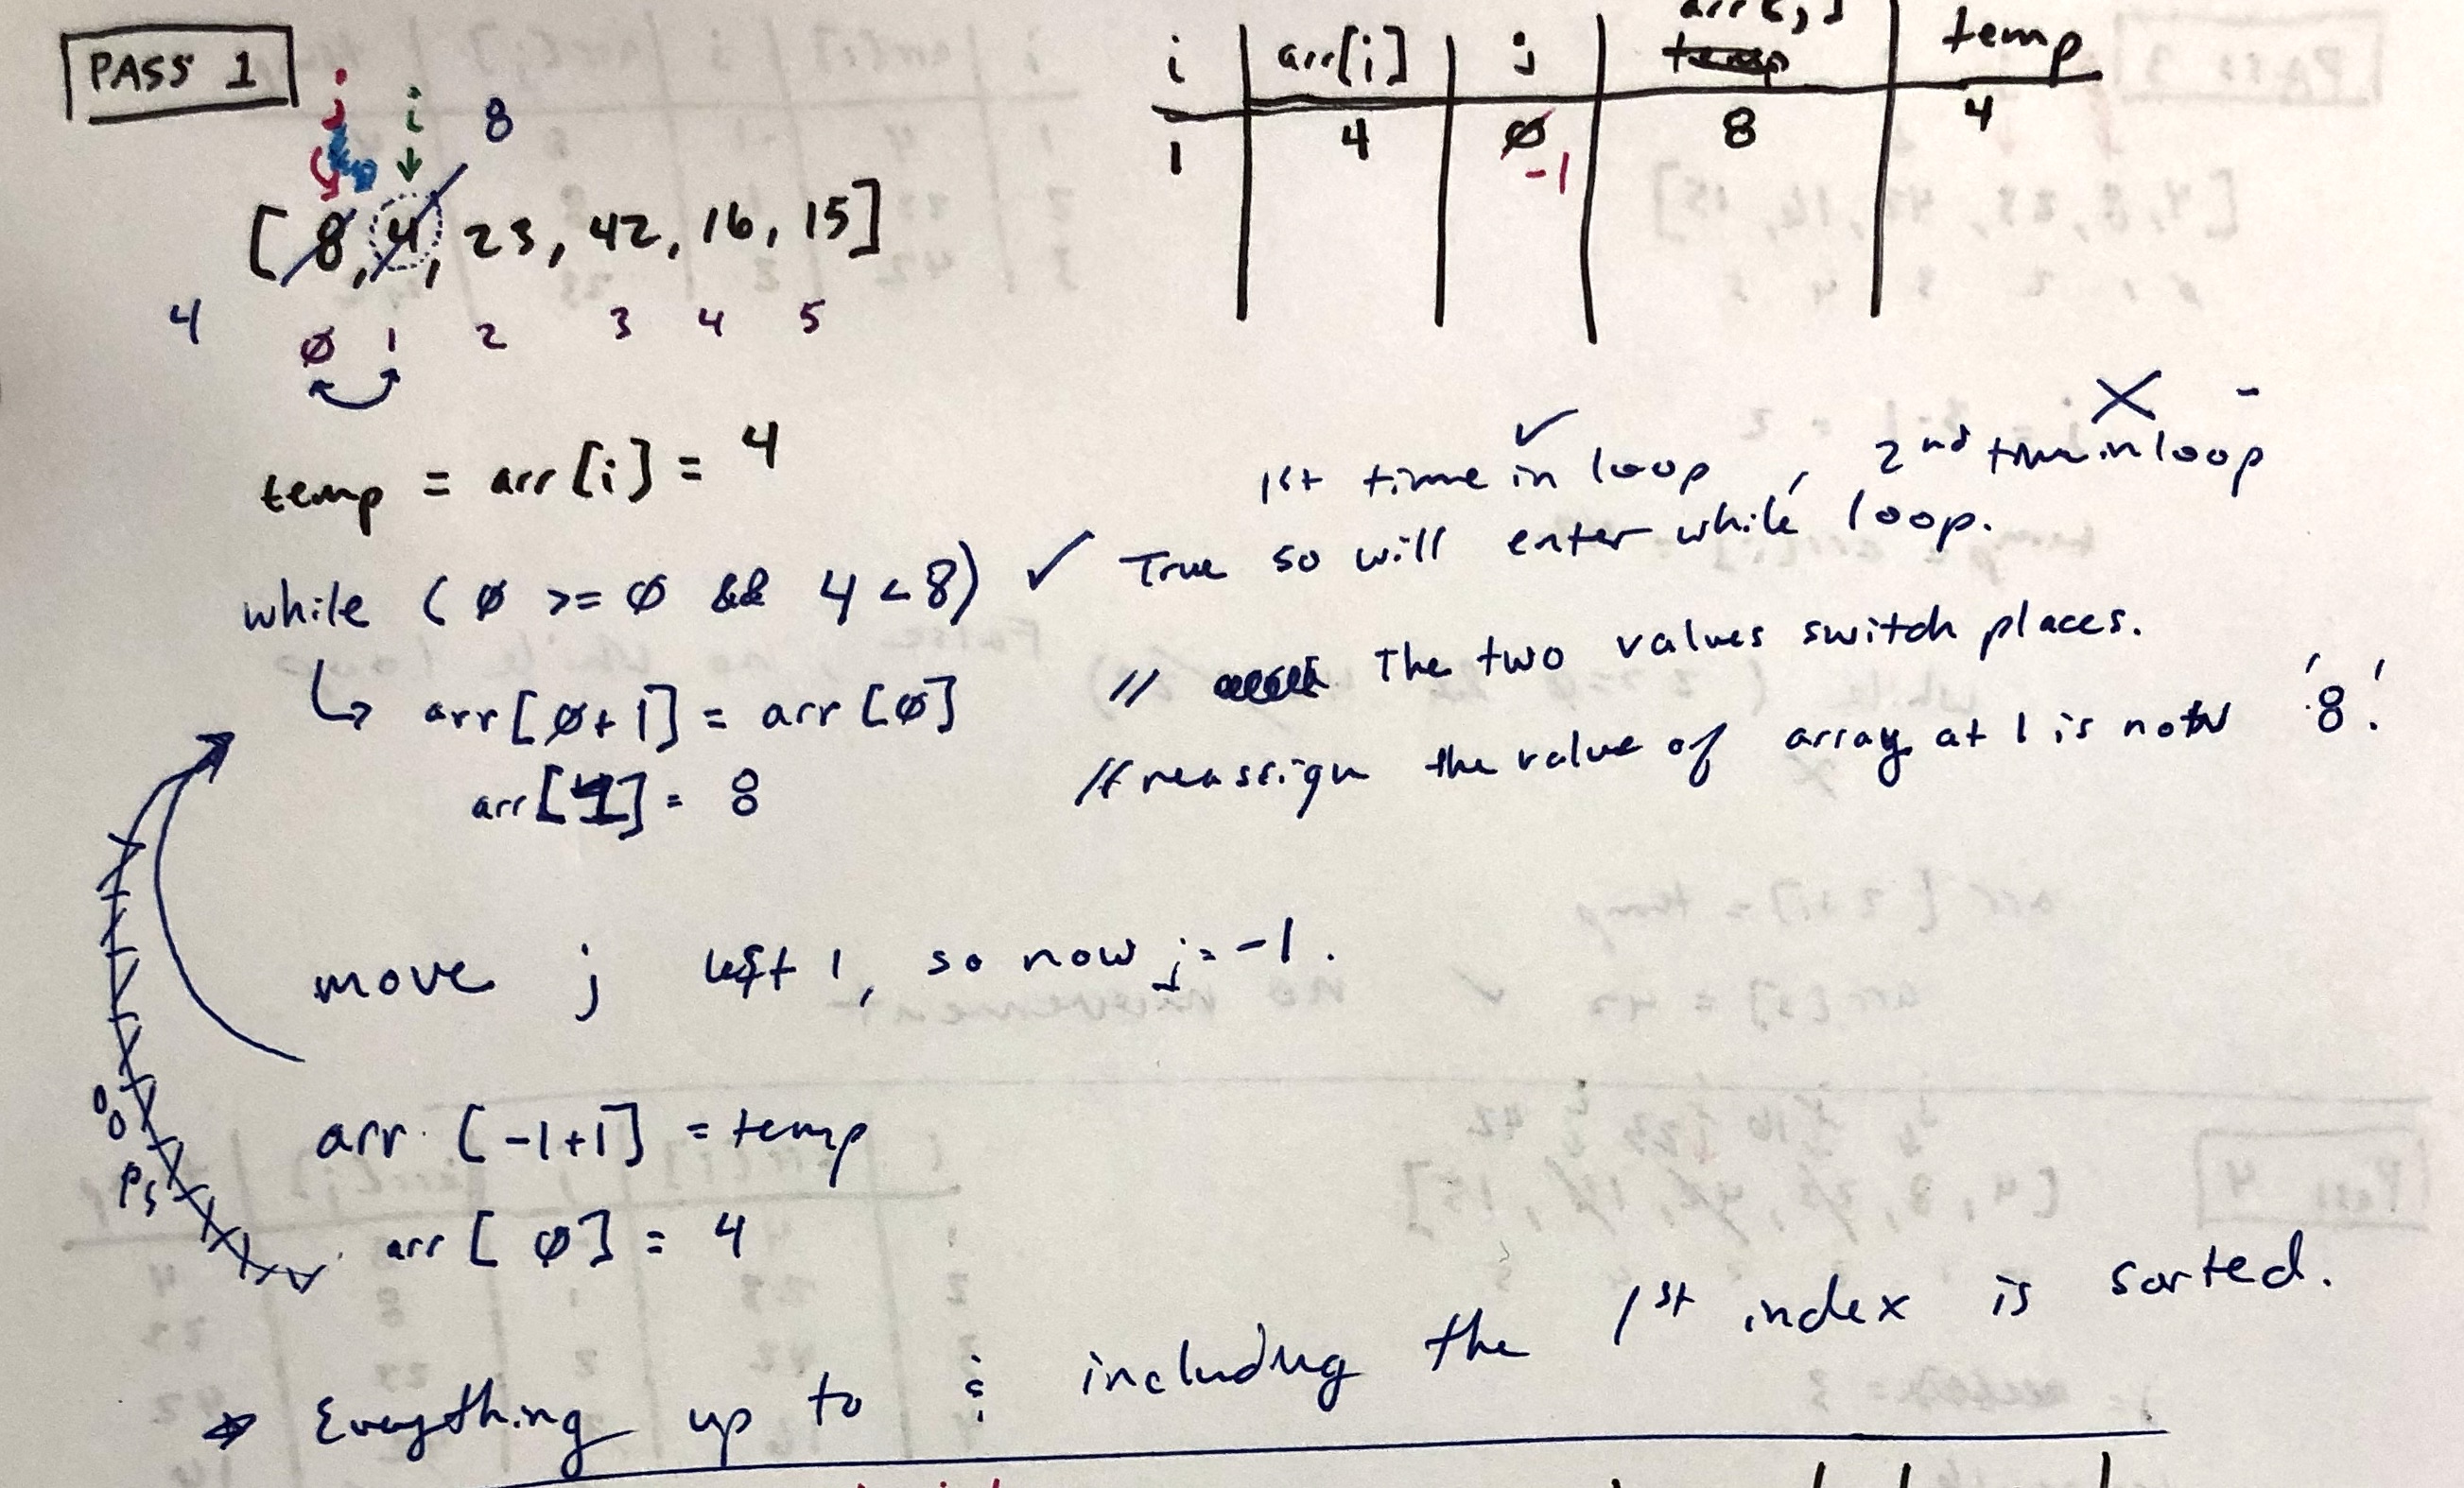 PASS 1
j i 8
[8, 4, 23, 42, 16, 15]
4 0 1 2 3 4 5
i arr[i] j temp temp
1 4 0 8 4
-1
temp = arr[i] = 4
1st time in loop, 2nd time in loop
while (0 >= 0 && 4 < 8) ✓ True so will enter while loop.
↳ arr[0+1] = arr[0] // The two values switch places.
arr[1] = 8 // reassign the value of array at 1 is now '8'.
move j left 1, so now j = -1.
arr [-1+1] = temp
oops
arr [0] = 4
Everything up to & including the 1st index is sorted.